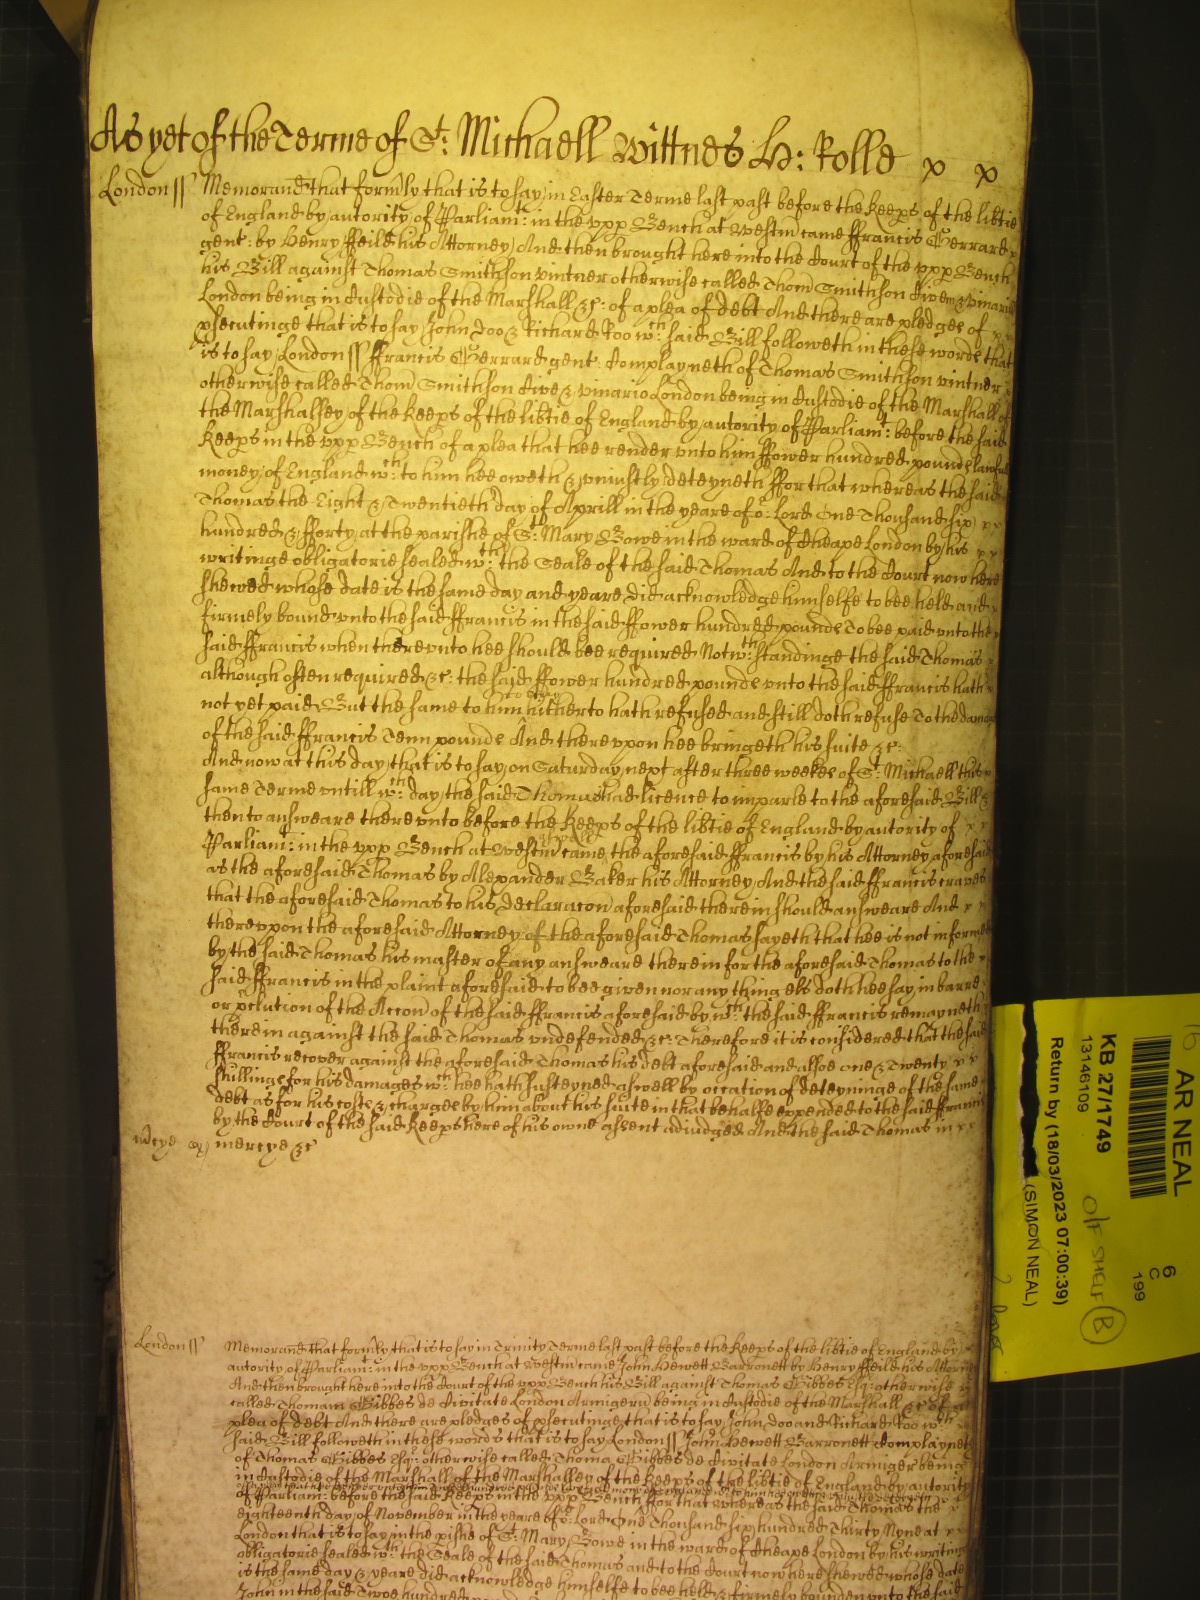 As yet of the Terme of St: Michaell Wittnes H: Rolle x x
London ss Memorand that form̃ly that is to say in Easter Terme last past before the Keeps of the lib̃tie
of England by autority of Parliamt: in the vpp Bench at Westm̃ came ffrancis Gerrard
gent: by Henry ffeild his Attorney And then brought here into the Court of the vpp Bench
his Bill against Thomas Smithson vintner otherwise called Thom̃ Smithson Civem & vinar̃
London being in Custodie of the Marshall &c: of a plea of debt And there are pledges of
psecutinge that is to say John Doo & Richard Roo wch: said Bill followeth in these words that
is to say London ss ffrancis Gerrard gent: Complayneth of Thomas Smithson vintner
otherwise called Thom̃ Smithson Cive & vinario London being in Custodie of the Marshall of
the Marshallsey of the Keeps of the lib̃tie of England by autority of Parliamt: before the said
Keeps in the vpp Bench of a plea that hee render vnto him ffower hundred pounds lawfull
money of England wch: to him hee oweth & vniustly deteyneth ffor that whereas the said
Thomas the Eight & Twentieth day of Aprill in the yeare of or: Lord One Thousand six
hundred & fforty at the parishe of St: Mary Bowe in the ward of Cheape London by his
writinge obligatorie sealed wth: the Seale of the said Thomas And to the Court now here
shewed whose date is the same day and yeare did acknowledge himselfe to bee held and
firmely bound vnto the said ffrancis in the said ffower hundred pounds To bee paid vnto the
said ffrancis when there vnto hee should bee required Notwth:standinge the said Thomas
although often required &c: the said ffower hundred pounds vnto the said ffrancis hath
not yet paid But the same to him to pay hitherto hath refused and still doth refuse To the damage
of the said ffrancis Tenn pounds And therevpon hee bringeth his suite &c:
And now at this day that is to say on Saturday next after three weekes of St: Michaell this
same Terme vntill wch: day the said Thomas had licence to imparle to the aforesaid Bill &
then to answeare there vnto before the Keeps of the lib̃tie of England by autority of
Parliamt: in the vpp Bench at Westm̃ came aswell the aforesaid ffrancis by his Attorney aforesaid
as the aforesaid Thomas by Alexander Baker his Attorney And the said ffrancis craves
that the aforesaid Thomas to his Declarac̃on aforesaid therein should answeare And
therevpon the aforesaid Attorney of the aforesaid Thomas sayeth that hee is not informed
by the said Thomas his master of any answeare therein for the aforesaid Thomas to the
said ffrancis in the plaint aforesaid to bee given nor any thing els doth hee say in barre
or pclution of the Acc̃on of the said ffrancis aforesaid by wch: the said ffrancis remayneth
therein against the said Thomas vndefended &c: Therefore it is considered that the said
ffrancis recover against the aforesaid Thomas his debt aforesaid and allsoe one & Twenty
shillings for his damages wch: hee hath susteyned aswell by occation of deteyninge of the same
debt as for his costs & charges by him about his suite in that behalfe expended to the said ffrancis
by the Court of the said Keeps here of his owne assent adiudged And the said Thomas in
m̃cye
mercye &c
London ss Memorand that form̃ly that is to say in Trinity Terme last past before the Keeps of the lib̃tie of England by
autority of Parliamt: in the vpp Bench at Westm̃ came John Hewett Barronett by Henry ffeild his Attorney
And then brought here into the Court of the vpp Bench his Bill against Thomas Gibbes Esqr: otherwise
called Thomam Gibbes de Civitate London Armigeru being in Custodie of the Marshall &c: of a
plea of debt And there are pledges of psecutinge that is to say John Doo and Richard Roo wch
said Bill followeth in these words that is to say London ss John Hewett Barronett Complayneth
of Thomas Gibbes Esqr: otherwise called Thoma Gibbes de Civitate London Armiger being
in Custodie of the Marshall of the Marshalsey of the Keeps of the lib̃tie of England by autority
of Parliamt: before the said Keeps in the vpp Bench ffor that whereas the said Thomas the
eighteenth day of November in the yeare of or: Lord One Thousand six hundred Thirty Nyne at
London that is to say in the pishe of St: Mary Bowe in the ward of Cheape London by his writing
obligatorie sealed wth: the Seale of the said Thomas and to the Court now here shewed whose date
is the same day & yeare did acknowledge himselfe to bee held & firmely bounden vnto the said
John in the said Twoe hundred
AR NEAL
KB 27/1749
13146109
Return by (18/03/2023 07:00:39)
(SIMON NEAL)
6
C
199
O/F SHELF
B